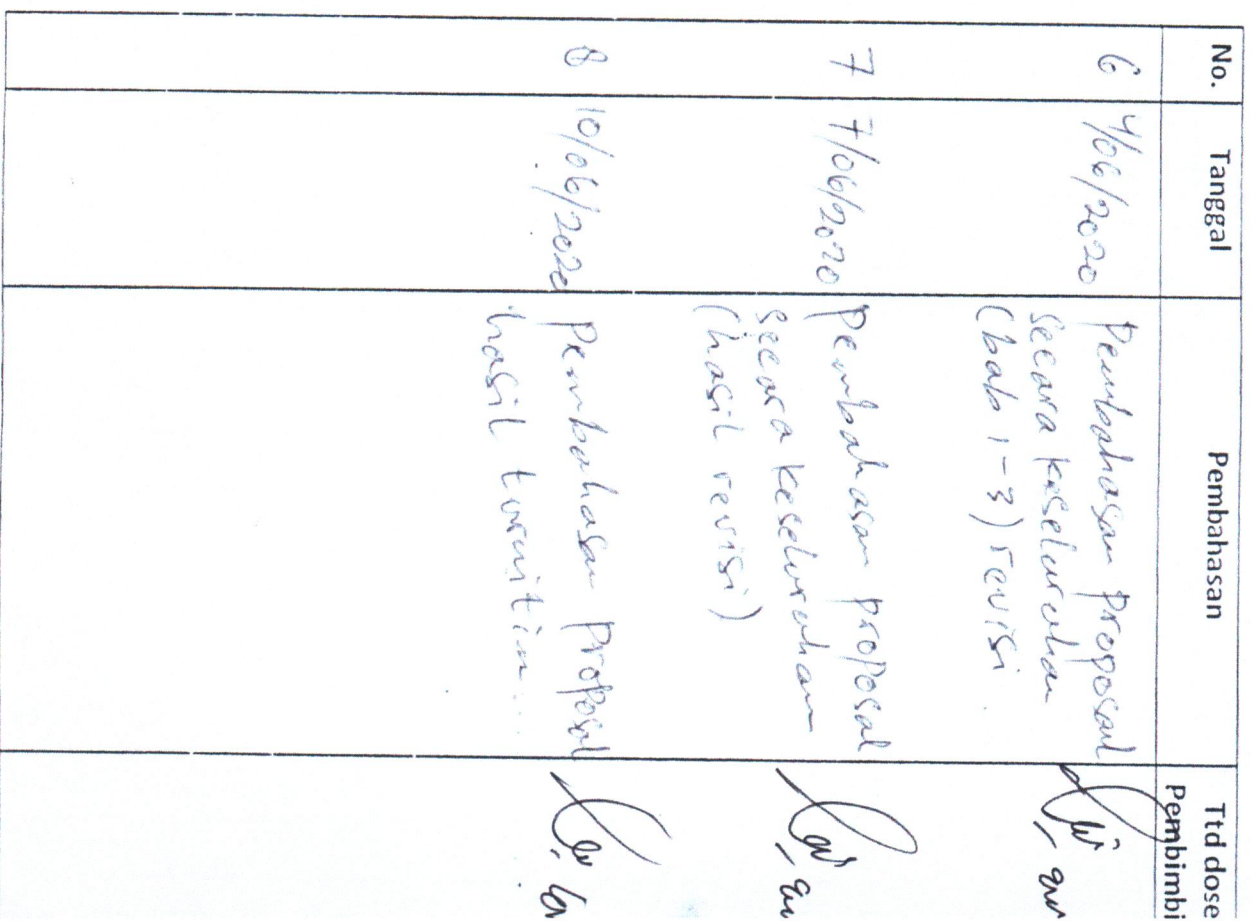 No. Tanggal Pembahasan Ttd dose
Pembimbi
6 4/06/2020 Pembahasan Proposal
secara keseluruhan
(bab 1-3) revisi
7 7/06/2020 Pembahasan proposal
secara keseluruhan
(hasil revisi)
8 10/06/2020 Pembahasan proposal
hasil turnitin